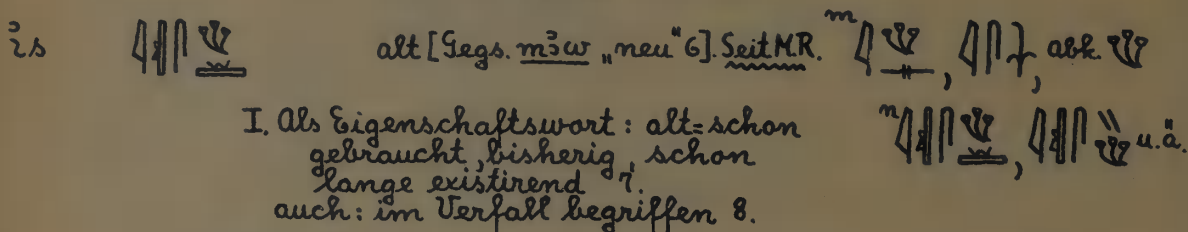 ꞽs alt [Gegs. mꜣw „neu“ 6]. Seit M.R. m , , abk.
I. Als Eigenschaftswort: alt = schon n , u. ä.
gebraucht, bisherig, schon
lange existirend 7.
auch: im Verfall begriffen 8.